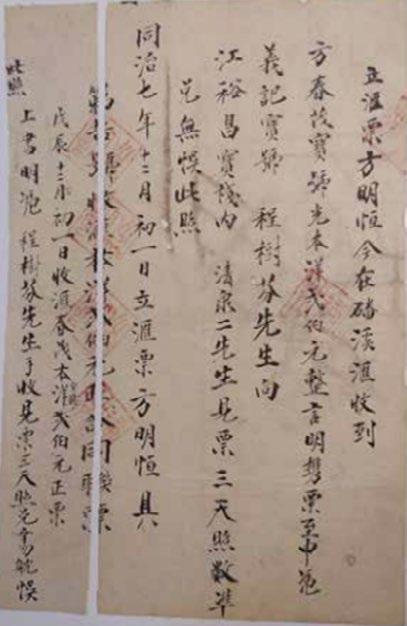 立滙票方明恒今在磻溪滙收到
方春茂寳號光本洋弍伯元整言明携票至申憑
義記寳號 程樹芬先生向
江裕昌寳棧內 清泉二先生見票三天照數準
兌無悮此照
同治七年十二月初一日立滙票方明恒具
戊辰十二月初一日收滙春茂本洋弍伯元正票
上書明憑 程樹芬先生手收見票三天照兌
此照